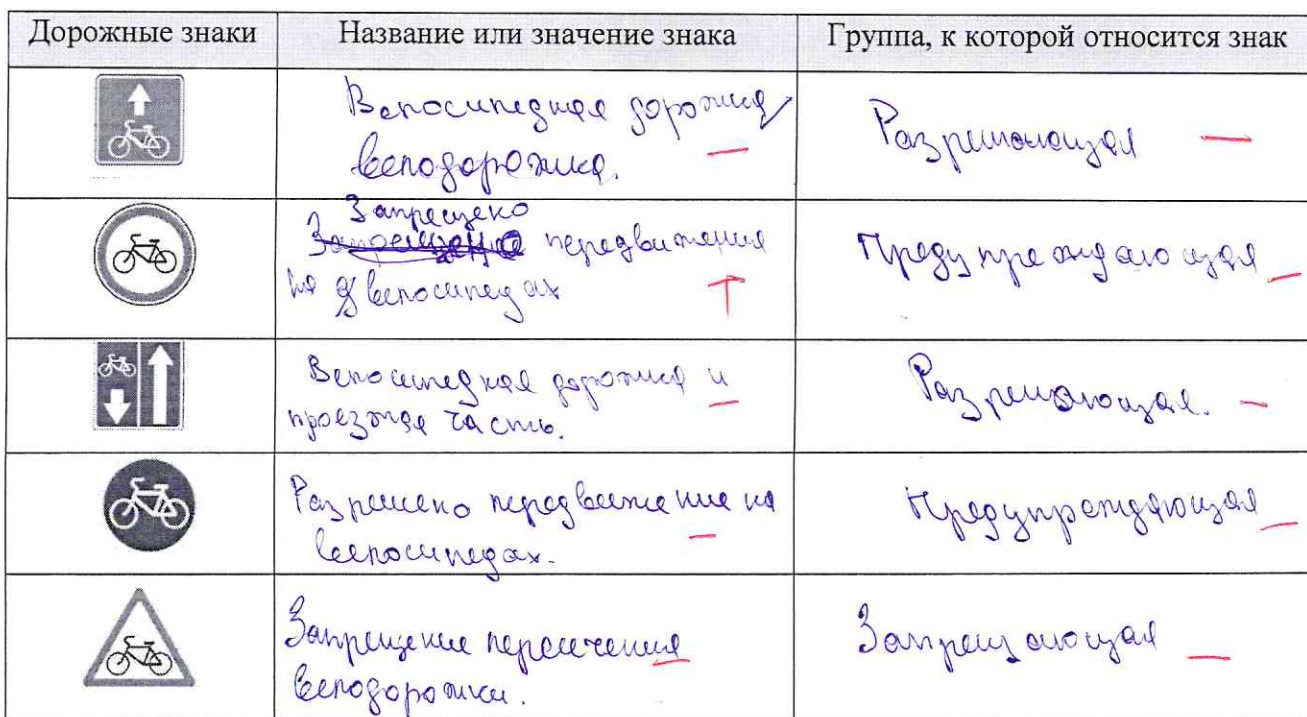 Дорожные знаки
Название или значение знака
Группа, к которой относится знак
Велосипедная дорожка/
велодорожка.
Разрешающая
Запрещено
передвижения
на велосипедах
Предупреждающая
Велосипедная дорожка и
проезжая часть.
Разрешающая.
Разрешено передвежение на
велосипедах.
Предупреждающая
Запрещение пересечения
велодорожки.
Запрещающая